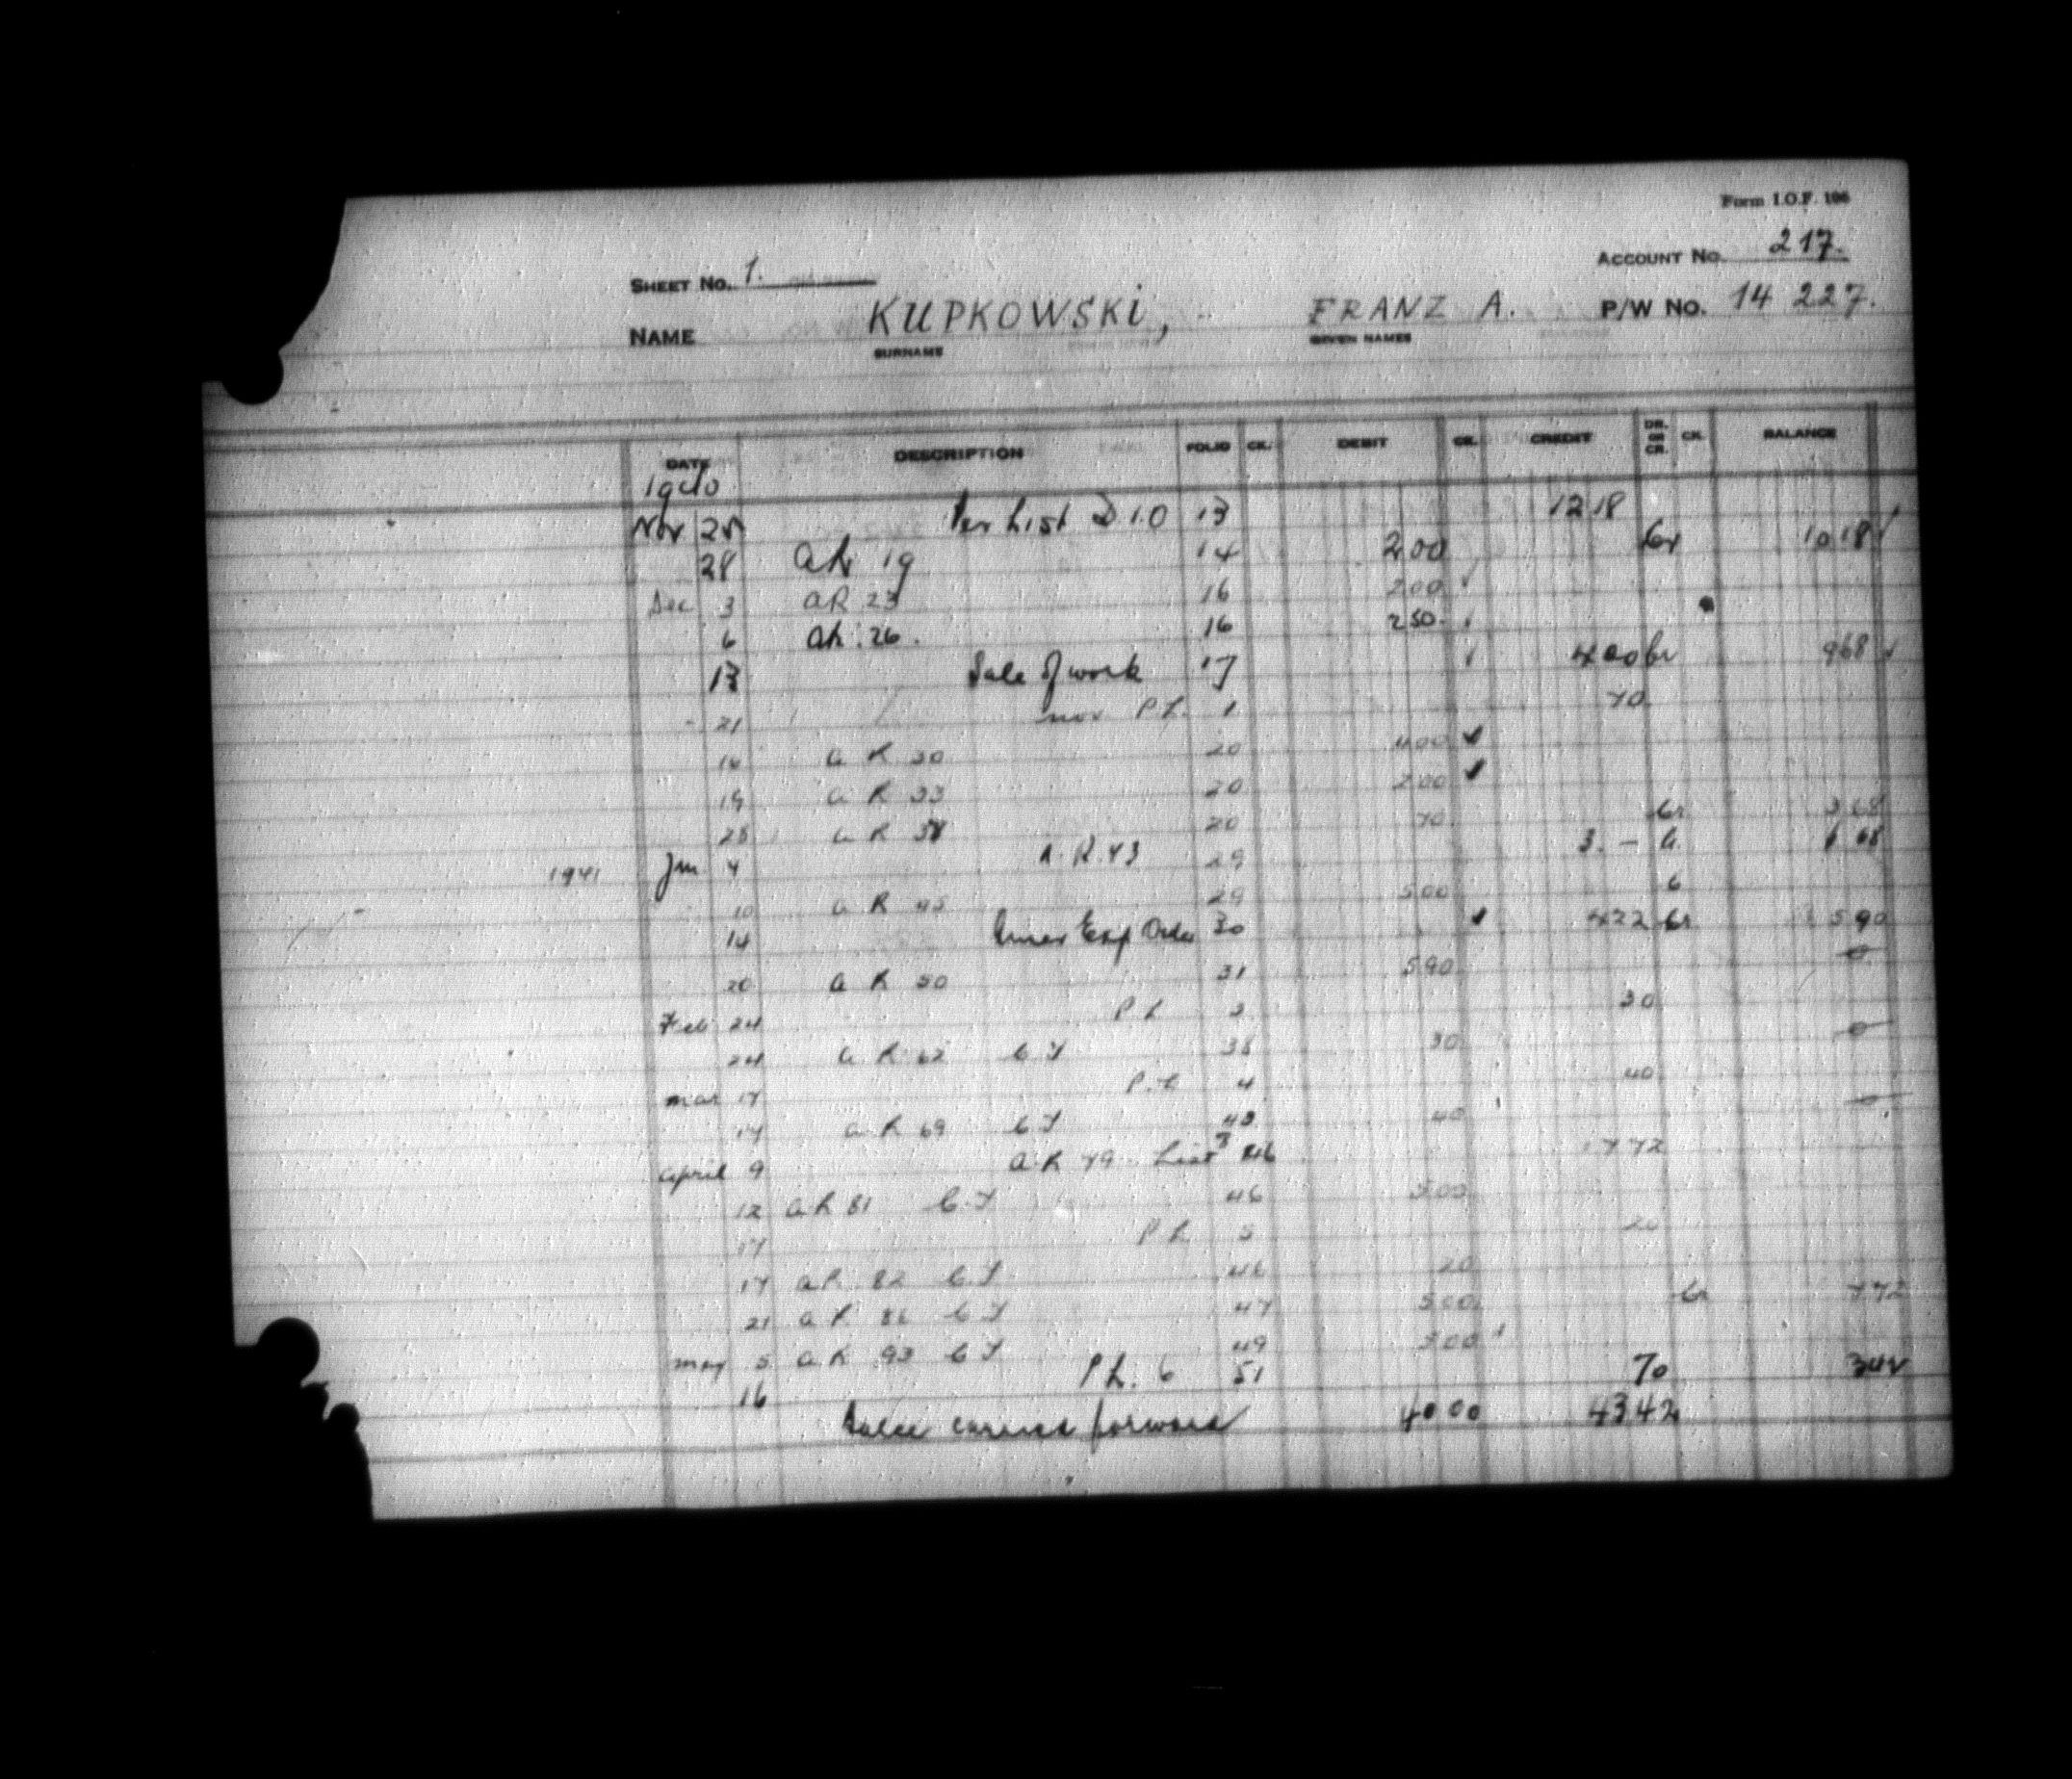 Form I.O.F. 106
ACCOUNT No. 217.
SHEET No. 1.
NAME KUPKOWSKI, FRANZ A. P/W No. 14 227.
SURNAME GIVEN NAMES
DATE DESCRIPTION FOLIO CK. DEBIT CK. CREDIT DR. OR CR. CK. BALANCE
1940
Nov 25 Per List D I.O 13 12 18
28 AR 19 14 2 00 Cr 10 18 ✓
Dec 3 AR 23 16 2 00 ✓
6 AR. 26. 16 2 50 ✓
13 Sale of work 17 ✓ 4 00 Cr 9 68 ✓
21 nov P.L. 1 70
16 A R 30 20 4 00 ✓
19 A R 33 20 2 00 ✓
28 A R 38 20 70 Cr 3 68
1941 Jan 4 A. R. 43 29 3. — Cr 6 68
10 A R 45 29 5 00
14 Amer Exp Order 30 ✓ 4 22 Cr 5 90
20 A R 50 31 5 90 0
Feb 24 P L 3 30
24 A R 62 C T 38 30 0
Mar 17 P.L 4 40
17 A R 69 C T 43 40 0
April 9 A R 79 List 3 46 17 72
12 A R 81 C.T 46 5 00
17 P L 5 20
17 A R 82 C.T 46 20
21 A R 86 C T 47 5 00 Cr 7 72
May 5 A R 93 C T 49 5 00 ✓
16 P L. 6 51 70 3 42
carried forward 40 00 43 42